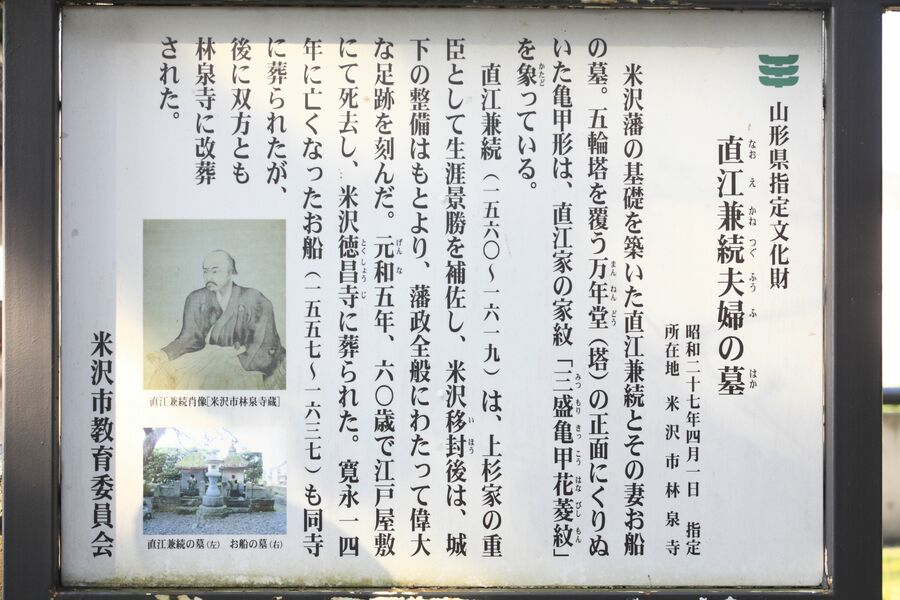 山形県指定文化財
直江兼続夫婦の墓
なおえかねつぐふうふはか
昭和二十七年四月一日 指定
所在地 米沢市林泉寺
米沢藩の基礎を築いた直江兼続とその妻お船
の墓。五輪塔を覆う万年堂(塔)の正面にくりぬ
まんねんどう
いた亀甲形は、直江家の家紋「三盛亀甲花菱紋」
みつもりきっこうはなびしもん
を象っている。
かたど
直江兼続(一五六〇～一六一九)は、上杉家の重
臣として生涯景勝を補佐し、米沢移封後は、城
いほう
下の整備はもとより、藩政全般にわたって偉大
な足跡を刻んだ。元和五年、六〇歳で江戸屋敷
げんな
にて死去し、米沢徳昌寺に葬られた。寛永一四
とくしょうじ
年に亡くなったお船(一五五七～一六三七)も同寺
に葬られたが、
後に双方とも
林泉寺に改葬
された。
直江兼続肖像[米沢市林泉寺蔵]
直江兼続の墓(左) お船の墓(右)
米沢市教育委員会